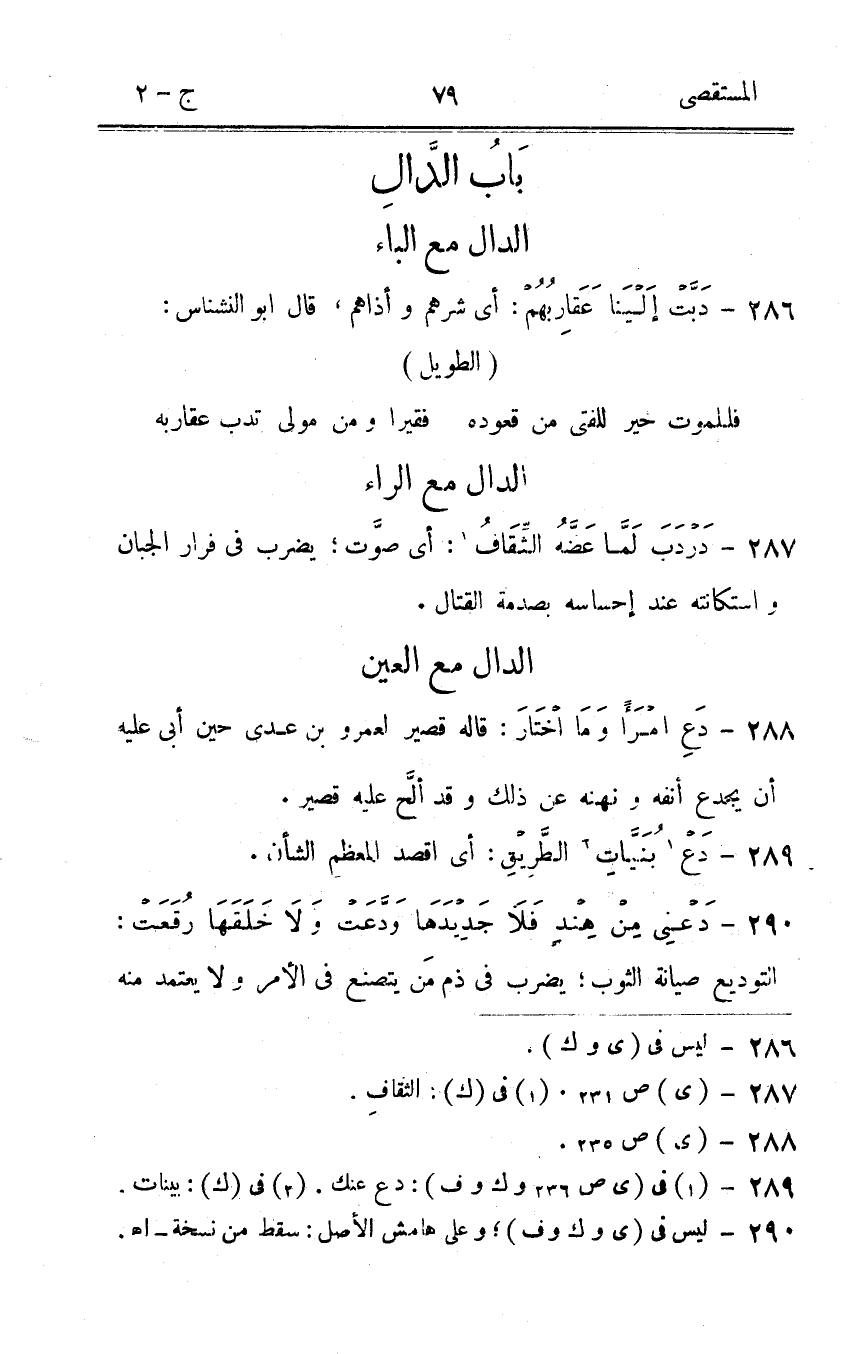 المستقصى ٧٩ ج – ٢
بَابُ الدَّالِ
الدال مع الباء
٢٨٦ – دَبَّتْ إِلَيْنَا عَقَارِبُهُمْ : أى شرهم و أذاهم ، قال ابو النشناس :
( الطويل )
فللموت خير للفتى من قعوده فقيرا و من مولى تدب عقاربه
الدال مع الراء
٢٨٧ – دَرْدَبَ لَمَّا عَضَّهُ الثِّقَافُ ١ : أى صوَّت ؛ يضرب فى فرار الجبان
و استكانته عند إحساسه بصدمة القتال .
الدال مع العين
٢٨٨ – دَعِ امْرَأً وَ مَا اخْتَارَ : قاله قصير لعمرو بن عدى حين أبى عليه
أن يجدع أنفه و نهنه عن ذلك و قد ألَّح عليه قصير .
٢٨٩ – دَعْ ١ بُنَيَّاتِ ٢ الطَّرِيْقِ : أى اقصد المعظم الشأن .
٢٩٠ – دَعْنِى مِنْ هِنْدٍ فَلَا جَدِيْدَهَا وَدَّعَتْ وَ لَا خَلَقَهَا رَقَعَتْ :
التوديع صيانة الثوب ؛ يضرب فى ذم مَن يتصنع فى الأمر و لا يعتمد منه
٢٨٦ – ليس فى ( ى و ك ) .
٢٨٧ – ( ى ) ص ٢٣١ . (١) فى (ك) : الثقافِ .
٢٨٨ – ( ى ) ص ٢٣٥ .
٢٨٩ – (١) فى ( ى ص ٢٣٦ و ك و ف ) : دع عنك . (٢) فى (ك) : بينات .
٢٩٠ – ليس فى ( ى و ك و ف ) ؛ و على هامش الأصل : سقط من نسخة – اه .